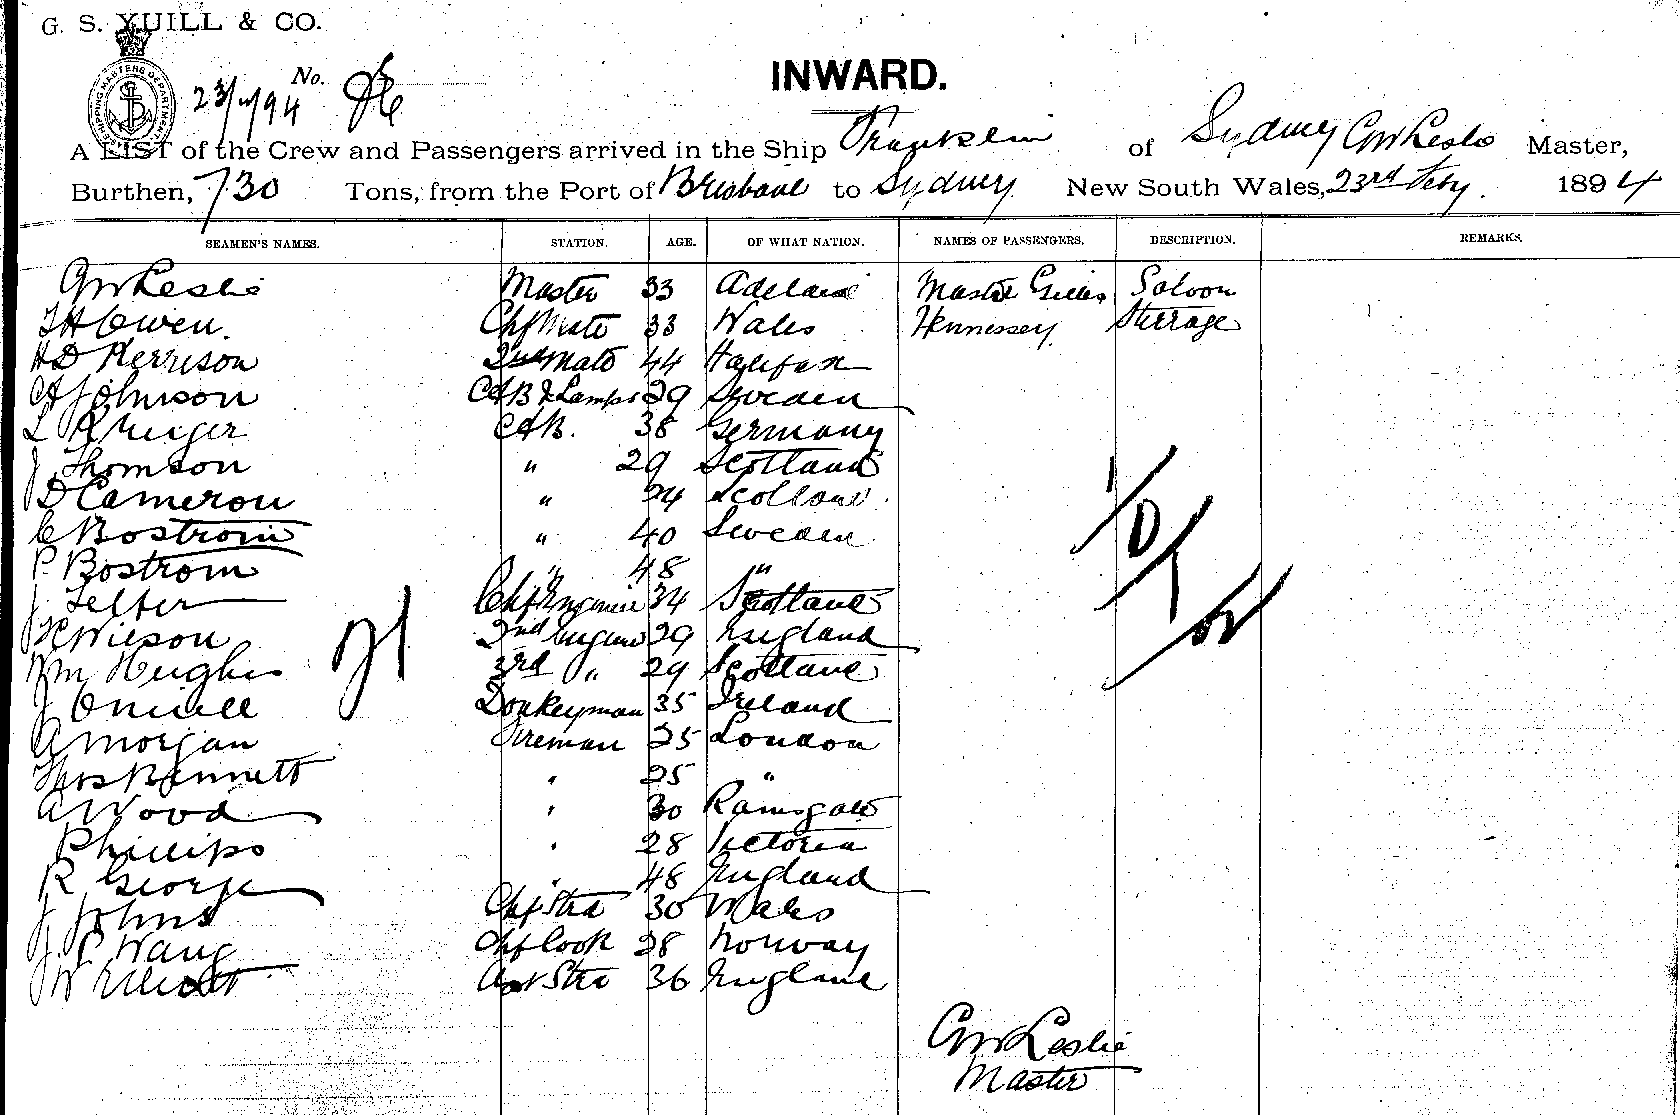 G. S. YUILL & CO.
SHIPPING MASTERS DEPARTMENT
No.
23/2/94
INWARD.
A LIST of the Crew and Passengers arrived in the Ship Franklin of Sydney GW Leslie Master,
Burthen, 730 Tons, from the Port of Brisbane to Sydney New South Wales, 23rd Feby. 1894
SEAMEN'S NAMES. STATION. AGE. OF WHAT NATION. NAMES OF PASSENGERS. DESCRIPTION. REMARKS.
GW Leslie Master 33 Adelaide Master Gilles Saloon
TH Owen. Chf Mate 33 Wales Hennessey Steerage
HD Kerrison 2nd Mate 44 Halifax
A Johnson AB & Lamps 29 Sweden
L Kruger AB. 38 Germany
J Thomson " 29 Scotland
D Cameron " 24 Scotland.
C Bostrom " 40 Sweden
P. Bostrom " 48 "
J. Telfer Chf Engineer 34 Scotland
Wilson 2nd Engineer 29 England
Wm Hughes 3rd " 29 Scotland
J Oneill Donkeyman 35 Ireland
A Morgan Fireman 25 London
Thos Bennett " 25 "
A Wood " 30 Ramsgate
Phillips " 28 Victoria
R George " 48 England
J Johns Chf Std 30 Wales
J. P. Wang Chf Cook 28 Norway
W Elliott Asst Std 36 England
21
GW Leslie
Master